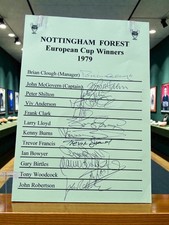 NOTTINGHAM FOREST
European Cup Winners
1979
Brian Clough (Manager)
John McGovern (Captain)
Peter Shilton
Viv Anderson
Frank Clark
Larry Lloyd
Kenny Burns
Trevor Francis
Ian Bowyer
Gary Birtles
Tony Woodcock
John Robertson